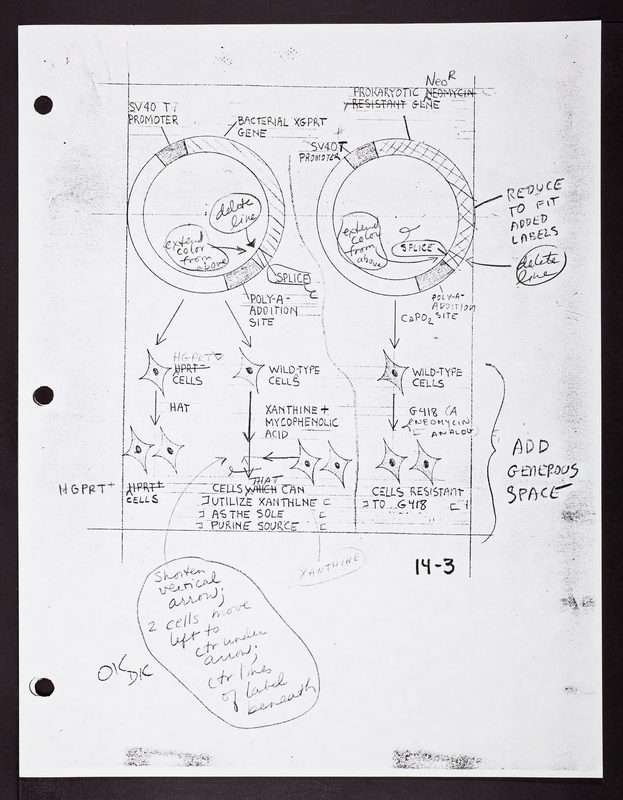 Neo^R
PROKARYOTIC NEOMYCIN
RESISTANT GENE
SV40 T
PROMOTER
BACTERIAL XGPRT
GENE
SV40T
PROMOTER
delete
line
extend
color
from
above
SPLICE
POLY-A-
ADDITION
SITE
extend
color
from
above
SPLICE
REDUCE
TO FIT
ADDED
LABELS
delete
line
POLY-A-
ADDITION
SITE
CaPO2
HGPRT-
HPRT-
CELLS
WILD-TYPE
CELLS
WILD-TYPE
CELLS
HAT
XANTHINE +
MYCOPHENOLIC
ACID
G418 (A
NEOMYCIN
ANALOG)
ADD
GENEROUS
SPACE
HGPRT+
HPRT+
CELLS
THAT
CELLS WHICH CAN
UTILIZE XANTHINE
AS THE SOLE
PURINE SOURCE
CELLS RESISTANT
TO G418
XANTHINE
14-3
Shorten
vertical
arrow;
2 cells move
left to
ctr under
arrow;
ctr lines
of label
beneath
OK
DK